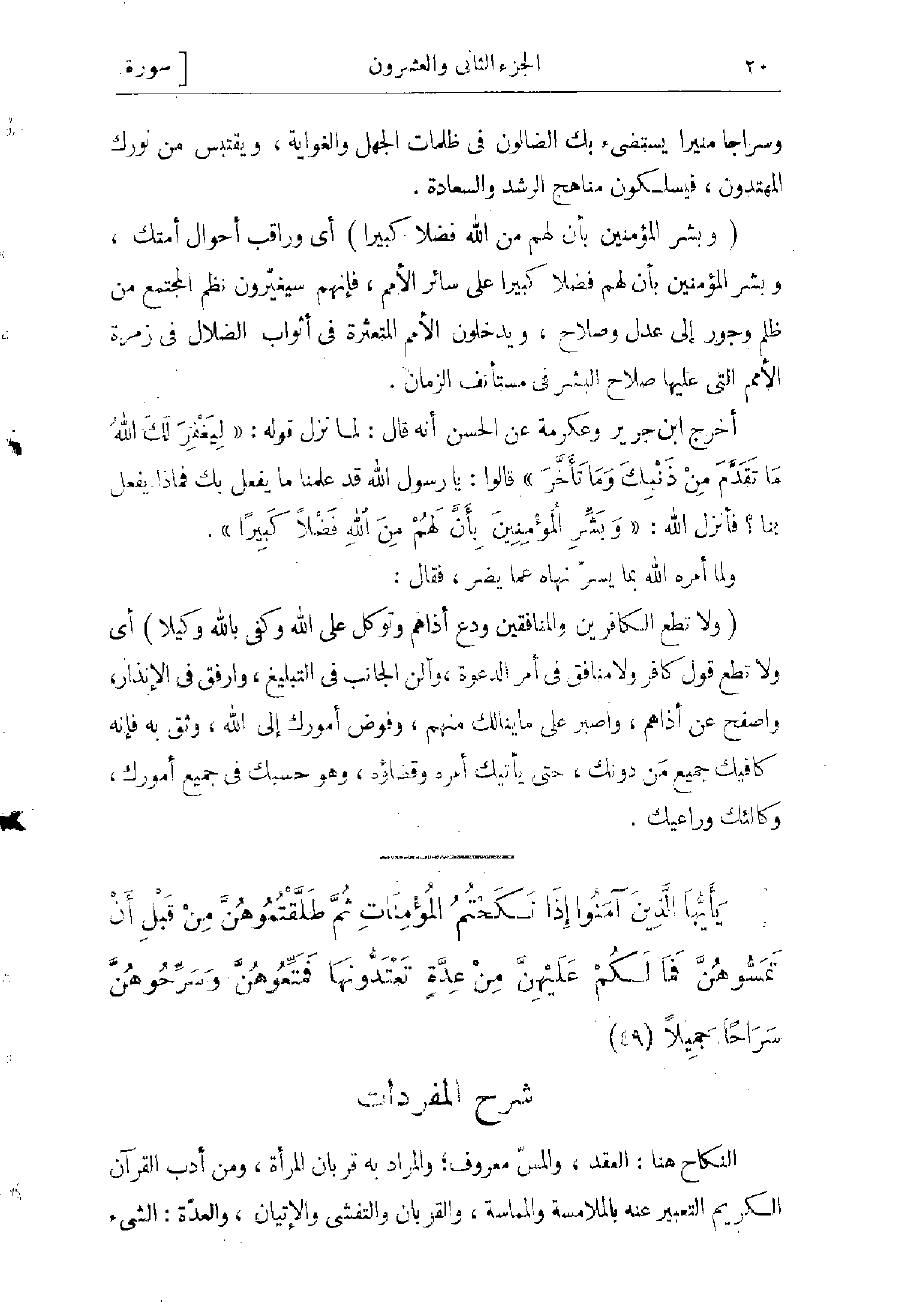 ٢٠ الجزء الثانى والعشرون [ سورة
وسراجا منيرا يستضىء بك الضالون فى ظلمات الجهل والغواية ، ويقتبس من نورك
المهتدون ، فيسلكون مناهج الرشد والسعادة .
( وبشر المؤمنين بأن لهم من الله فضلا كبيرا ) أى وراقب أحوال أمتك ،
وبشر المؤمنين بأن لهم فضلا كبيرا على سائر الأمم ، فإنهم سيغيّرون نظم المجتمع من
ظلم وجور إلى عدل وصلاح ، ويدخلون الأمم المتعثرة فى أثواب الضلال فى زمرة
الأمم التى عليها صلاح البشر فى مستأنف الزمان .
أخرج ابن جرير وعكرمة عن الحسن أنه قال : لما نزل قوله : « لِيَغْفِرَ لَكَ اللهُ
مَا تَقَدَّمَ مِنْ ذَنْبِكَ وَمَا تَأَخَّرَ » قالوا : يا رسول الله قد علمنا ما يفعل بك فماذا يفعل
بنا ؟ فأنزل الله : « وَبَشِّرِ الْمُؤْمِنِينَ بِأَنَّ لَهُمْ مِنَ اللهِ فَضْلاً كَبِيرًا » .
ولما أمره الله بما يسرّ نهاه عما يضر ، فقال :
( ولا تطع الكافرين والمنافقين ودع أذاهم وتوكل على الله وكفى بالله وكيلا ) أى
ولا تطع قول كافر ولا منافق فى أمر الدعوة ، وألن الجانب فى التبليغ ، وارفق فى الإنذار،
واصفح عن أذاهم ، واصبر على ماينالك منهم ، وفوض أمورك إلى الله ، وثق به فإنه
كافيك جميع مَن دونك ، حتى يأتيك أمره وقضاؤه ، وهو حسبك فى جميع أمورك ،
وكالئك وراعيك .
يَأَيُّهَا الَّذِينَ آمَنُوا إِذَا نَكَحْتُمُ الْمُؤْمِنَاتِ ثُمَّ طَلَّقْتُمُوهُنَّ مِنْ قَبْلِ أَنْ
تَمَسُّوهُنَّ فَمَا لَكُمْ عَلَيْهِنَّ مِنْ عِدَّةٍ تَعْتَدُّونَهَا فَمَتِّعُوهُنَّ وَسَرِّحُوهُنَّ
سَرَاحًا جَمِيلاً (٤٩)
شرح المفردات
النكاح هنا : العقد ، والمسّ معروف؛ والمراد به قربان المرأة ، ومن أدب القرآن
الكريم التعبير عنه بالملامسة والمماسة ، والقربان والتغشى والإتيان ، والعدّة : الشىء